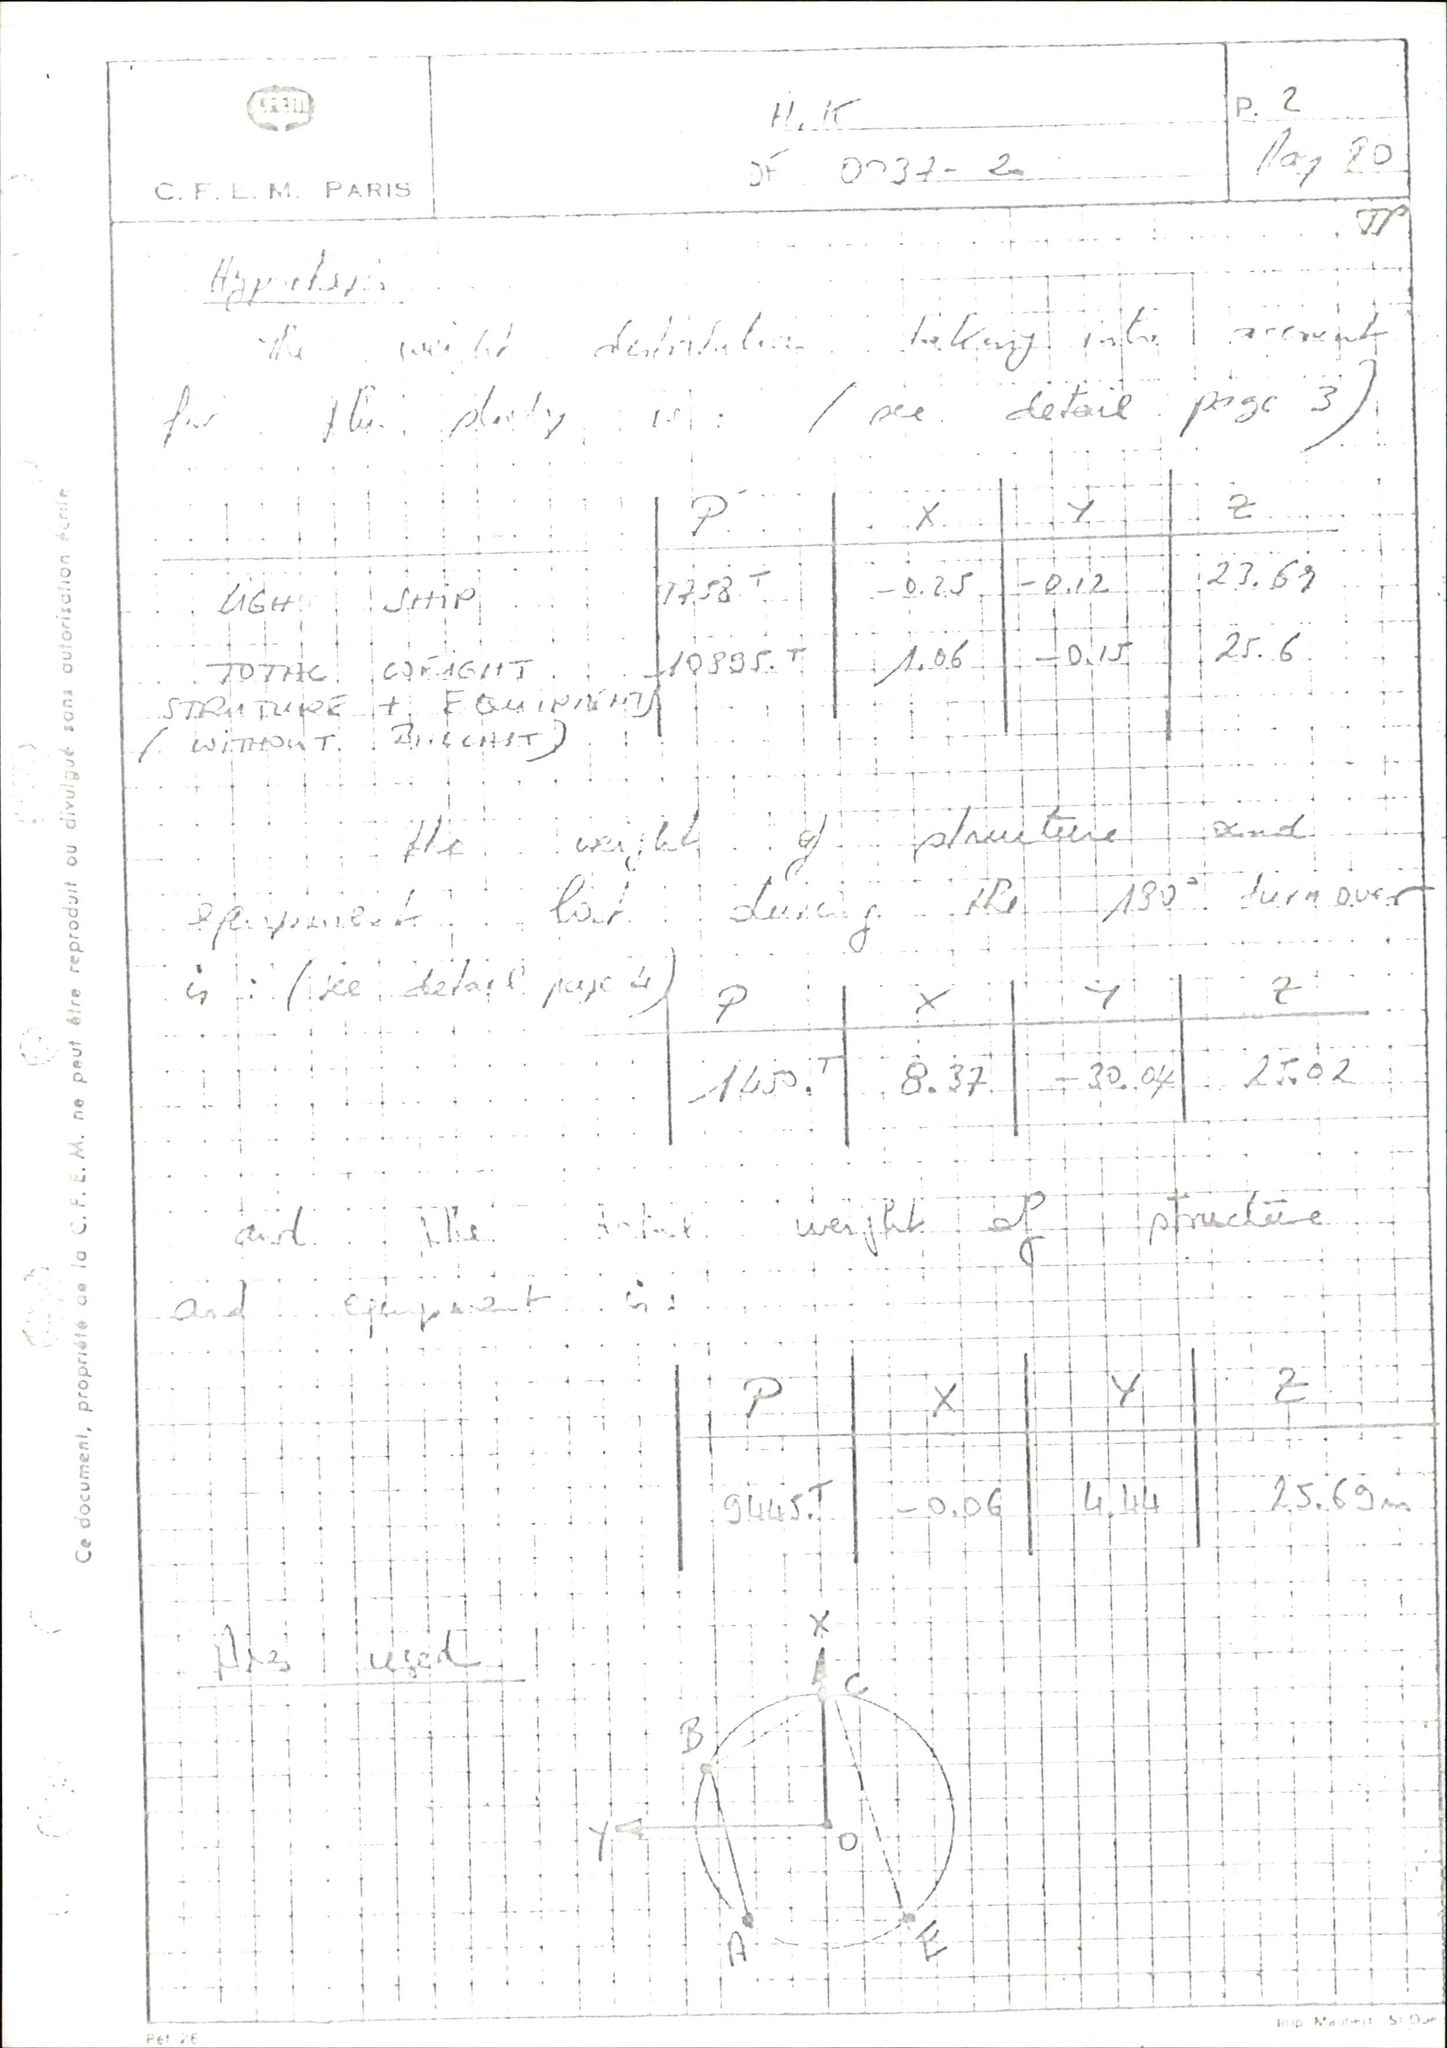 CFEM
C. F. E. M. PARIS
H.K
DF 0037-2
P. 2
May 80
Hypothesis
The weight distribution taking into account
for this study is : (see detail page 3)
P X Y Z
LIGHT SHIP 7758 T -0.25 -0.12 23.69
TOTAL WEIGHT 10895. T 1.06 -0.15 25.6
STRUTURE + EQUIPMENTS
(WITHOUT BALLAST)
the weight of structure and
equipment lost during the 180° turn over
is : (see detail page 4)
P X Y Z
1450. T 8.37 -30.04 25.02
and the total weight of structure
and equipment is :
P X Y Z
9445. T -0.06 4.44 25.69 m
Axes used
X
C
B
Y
O
A
E
Ce document, propriété de la C.F.E.M. ne peut être reproduit ou divulgué sans autorisation écrite
Ref 26